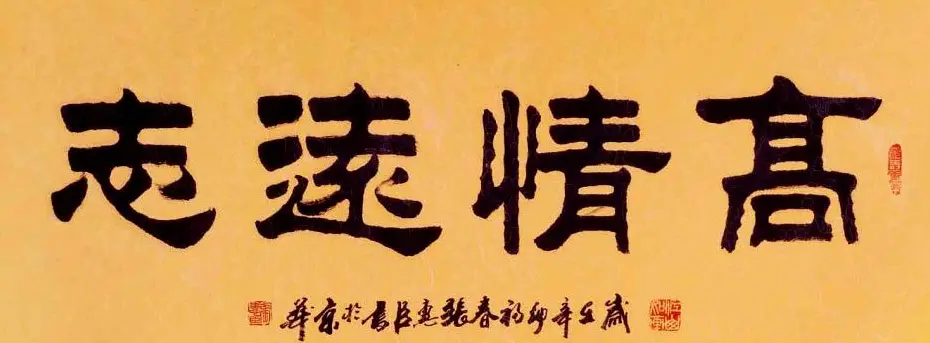 髙情遠志
歲在辛卯初春張惠臣書於京華